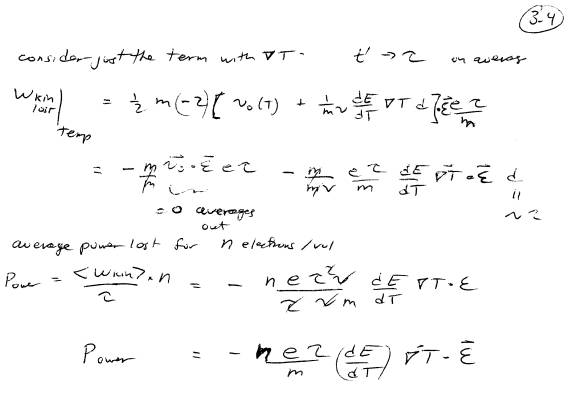 3-4
consider just the term with ∇T. t' → τ on average
W_kin lost |_temp = 1/2 m (-2) [ v_0(T) + 1/(mv) dE/dT ∇T d ] · ε⃗ e τ/m
= - m/m v⃗_0 · ε⃗ e τ - m/(mv) e τ/m dE/dT ∇⃗T · ε⃗ d
= 0 averages out
॥
v τ
average power lost for n electrons/vol
Power = <W_kin> · n / τ = - n e τ² v / (τ v m) dE/dT ∇T · ε
Power = - n e τ / m (dE/dT) ∇⃗T · ε⃗